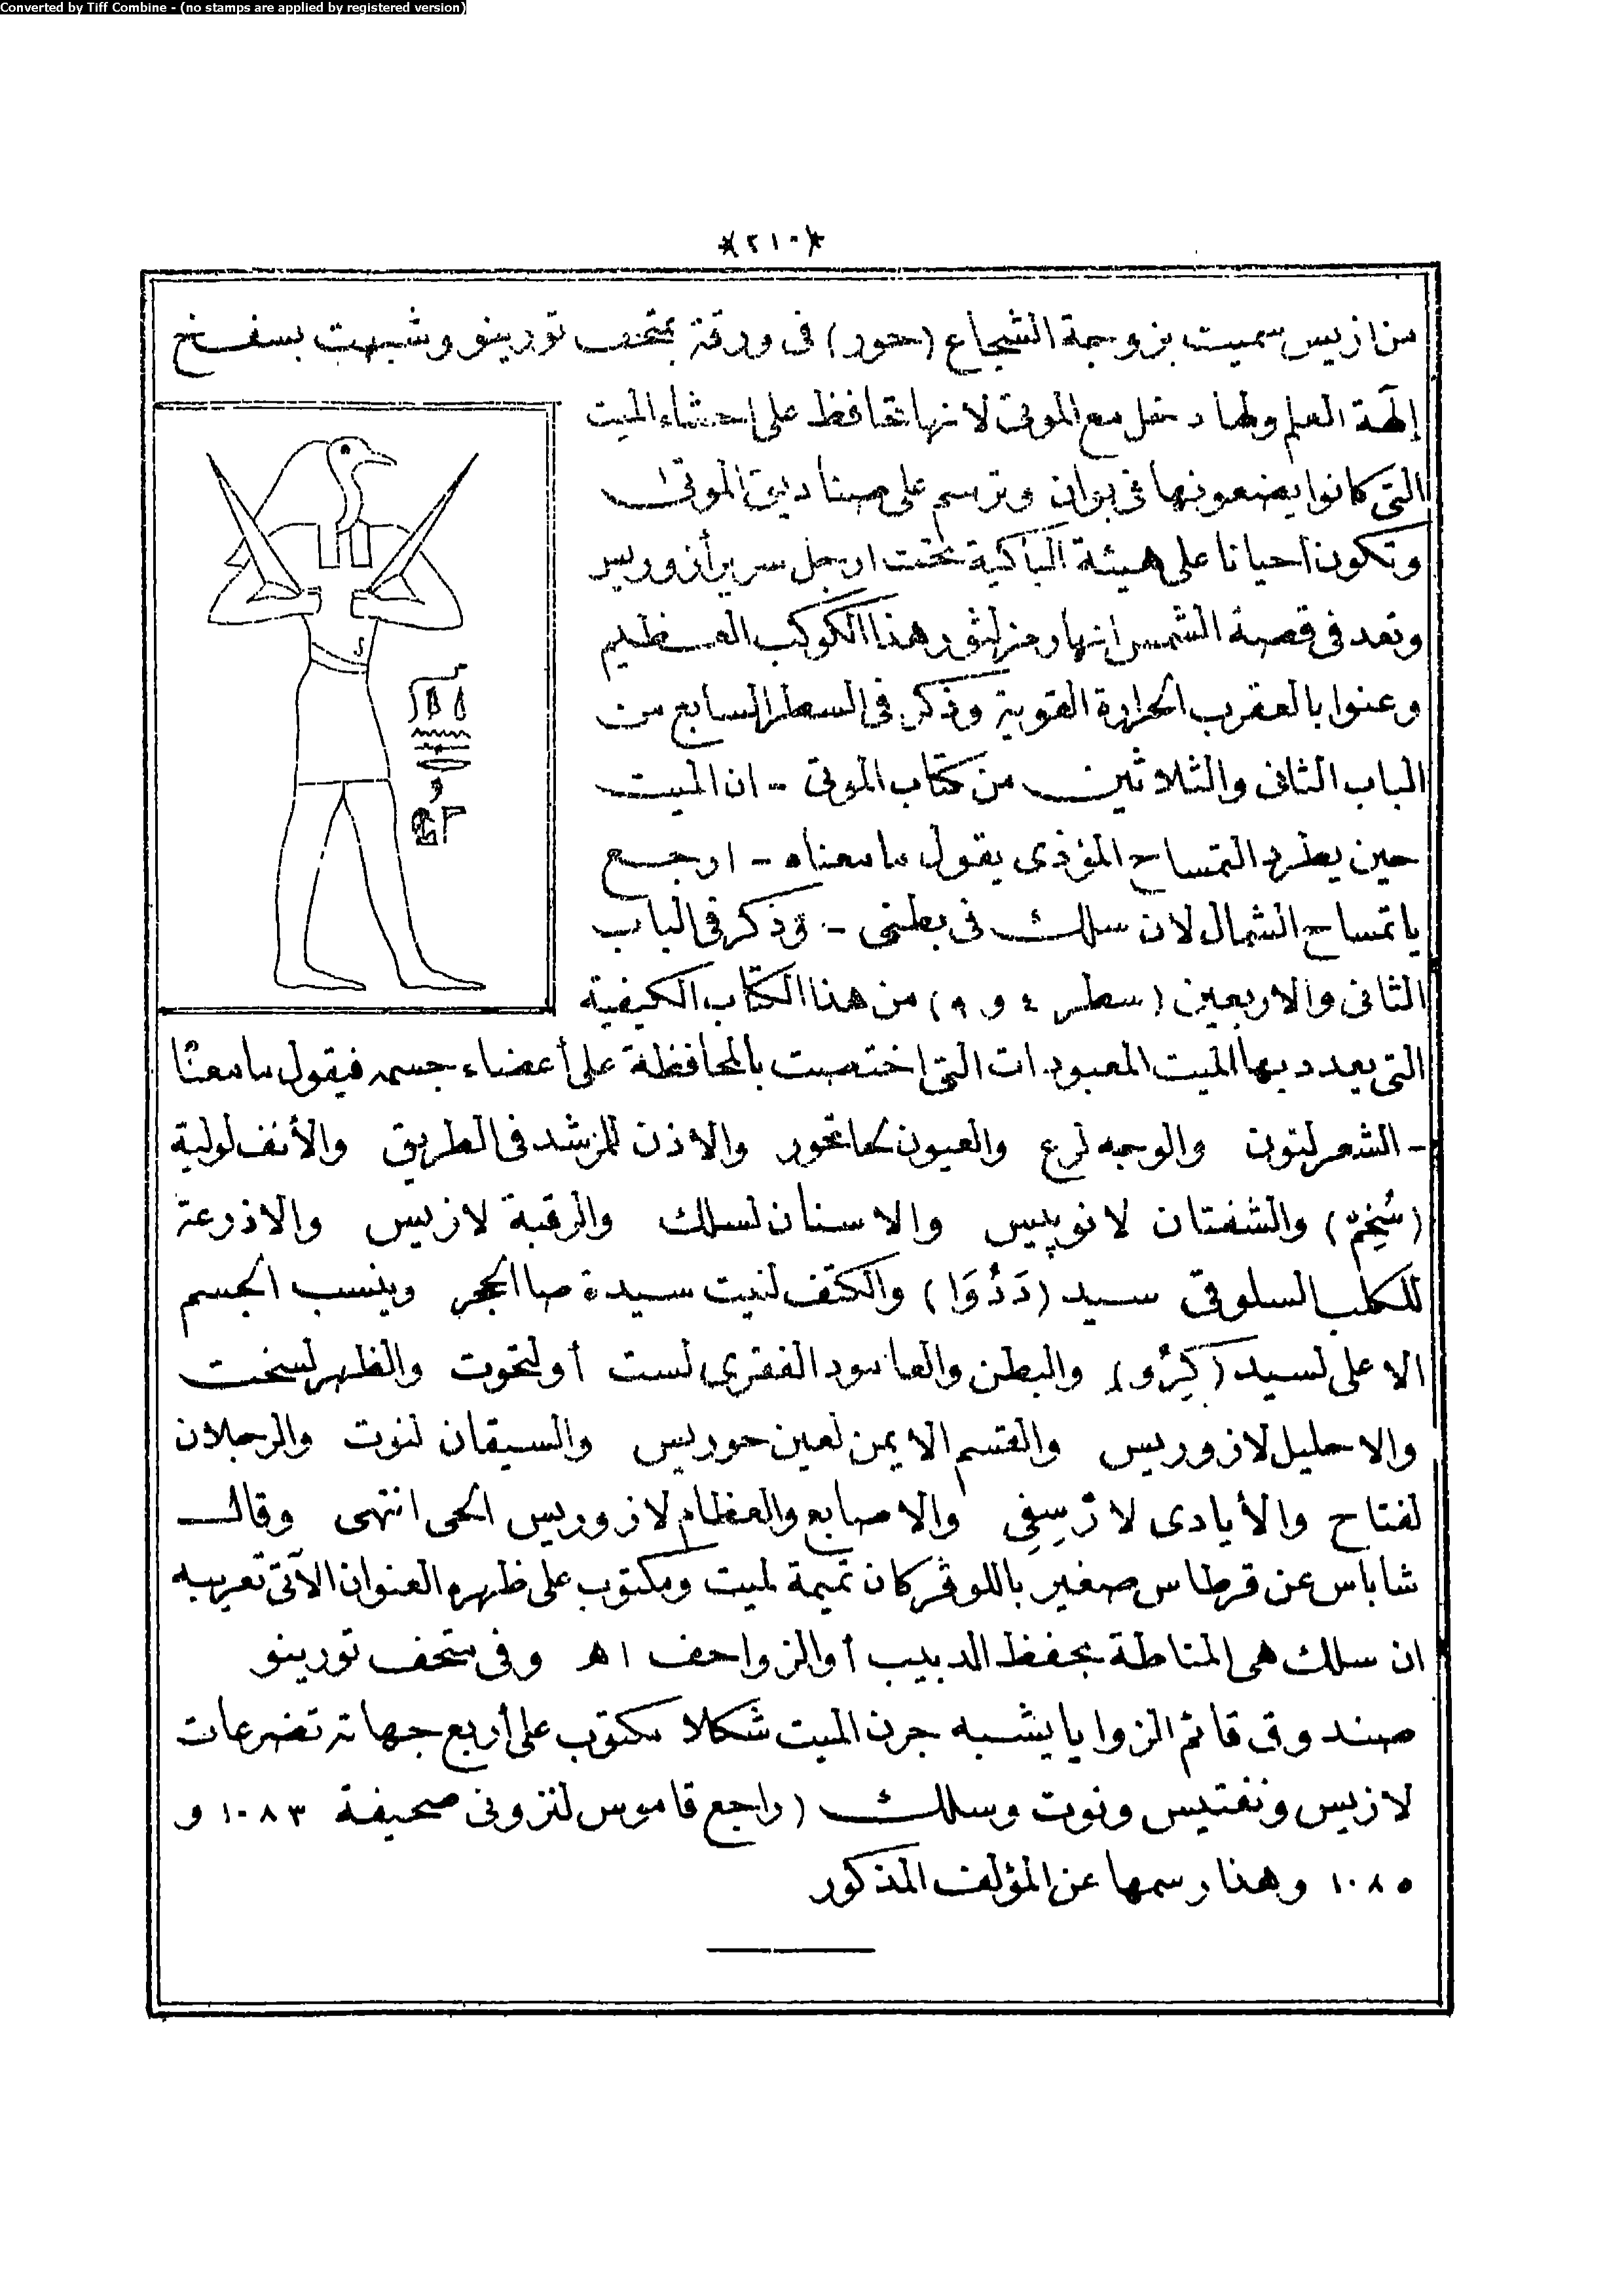 Converted by Tiff Combine - (no stamps are applied by registered version)
*(٢١٠)*
من ازيس سميت بزوجة الشجاع (حور) فى ورقة بمتحف تورينو وشبهت بسفخ
إلهة العلم ولها دخل مع الموتى لانها تحافظ على احشاء الميت
التى كانوا يضعونها فى بوان وترسم على صناديق الموتى
وتكون احيانا على هيئة الباكية تحت ارجل سرير أزوريس
وتعد فى قصة الشمس انها رمز لثور هذا الكوكب العظيم
وعنوا بالعقرب الحرارة القوية وذكر فى السطر السابع من
الباب الثانى والثلاثين من كتاب الموتى - ان الميت
حين يطرد التمساح المؤذى يقول ما معناه - ارجع
يا تمساح الشمال لان سلك فى بطنى - وذكر فى الباب
الثانى والاربعين (سطر ٤ و ٩) من هذا الكتاب الكيفية
التى يعدد بها الميت المعبودات التى اختصت بالمحافظة على أعضاء جسمه فيقول ما معناه
- الشعر لنون والوجه لرع والعيون لهاتحور والاذن للمرشد فى الطريق والأنف لولية
(سُخِمْ) والشفتان لانوبيس والاسنان لسلك والرقبة لازيس والاذرعة
للكلب السلوقى سيد (دَدُوَا) والكتف لنيت سيدة صا الحجر وينسب الجسم
الاعلى لسيد (كِرُو) والبطن والعامود الفقرى لست أو لتحوت والظهر لسخت
والاحليل لازوريس والقسم الايمن لعين حوريس والسيقان لنوت والرجلان
لفتاح والأيادى لارْسِفِى والاصابع والعظام لازوريس الحى انتهى وقال
شاباس عن قرطاس صغير باللوڤر كان تميمة لميت ومكتوب على ظهره العنوان الآتى تعريبه
ان سلك هى المناطة بحفظ الدبيب أو الزواحف اهـ وفى متحف تورينو
صندوق قائم الزوايا يشبه جرن الميت شكلا مكتوب على أربع جهاته تضرعات
لازيس ونفتيس ونوت وسلك (راجع قاموس لنزونى صحيفة ١٠٨٣ و
١٠٨٥ وهنا رسمها عن المؤلف المذكور